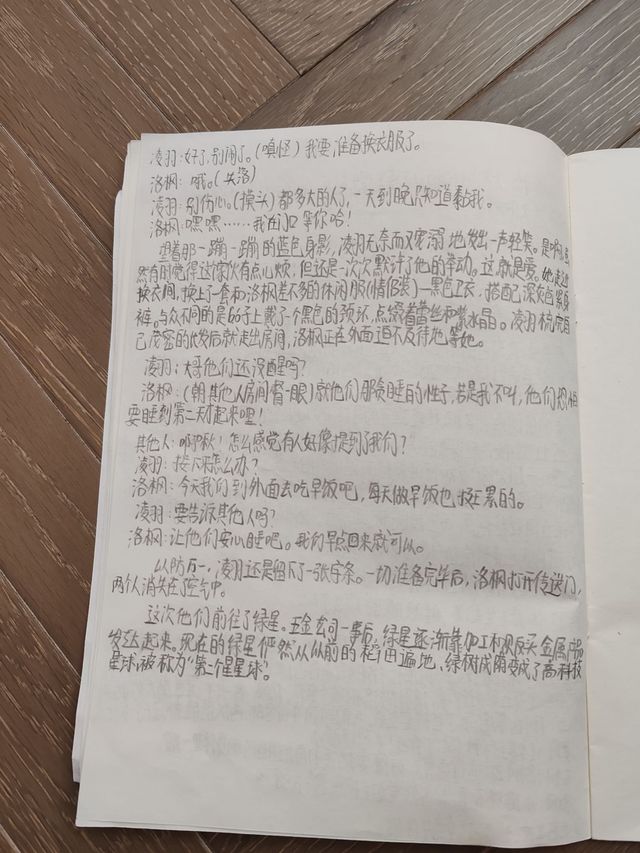 凌羽：好了，别闹了。（嗔怪）我要准备换衣服了。
洛枫：哦。（失落）
凌羽：别伤心。（摸头）都多大的人了，一天到晚只知道黏我。
洛枫：嘿嘿……我在门口等你哈！
望着那一蹦一蹦的蓝色身影，凌羽无奈而又宠溺地发出一声轻笑。是啊，虽
然有时觉得这家伙有点心烦，但还是一次次默许了他的举动。这就是爱。她走进
换衣间，换上了一套和洛枫差不多的休闲服（情侣装）—黑色卫衣，搭配深灰色紧身
裤。与众不同的是脖子上戴了个黑色的颈环，点缀着蕾丝和紫水晶。凌羽梳完自
己茂密的长发后就走出房间，洛枫正在外面迫不及待地等她。
凌羽：大哥他们还没醒吗？
洛枫：（朝其他人房间瞥一眼）就他们那贪睡的性子，若是我不叫，他们想
要睡到第二天才起来哩！
其他人：啊啾！怎么感觉有人好像提到了我们？
凌羽：接下来怎么办？
洛枫：今天我们到外面去吃早饭吧，每天做早饭也挺累的。
凌羽：要告诉其他人吗？
洛枫：让他们安心睡吧。我们早点回来就可以。
以防万一，凌羽还是留下了一张字条。一切准备完毕后，洛枫打开传送门，
两个人消失在了空气中。
这次他们前往了绿星。五金玄司一事后，绿星逐渐靠加工和贩卖金属
发达起来。现在的绿星俨然从以前的稻田遍地、绿树成荫变成了高科技
星球，被称为“第二个星星球”。